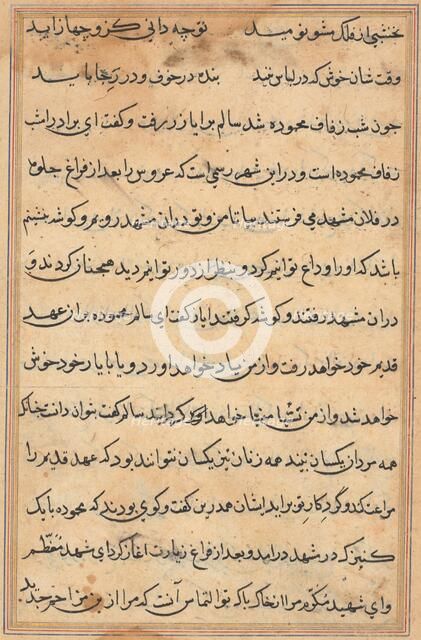 نخشبی از فلک مشو نومید تو چه دانی کزو چها زاید
وقت شان خوش که در لباس بیند بنده در خوف و در رجا باید
جون شب زفاف محموده شد سالم برایاز رفت و گفت ای برادر امشب
زفاف محموده است و در این شهر رسمی است که عروس را بعد از فراغ جلوه
در فلان مشهد می فرستند بیا تا من و تو در ان مشهد رویم و گوشه بنشینم
باشد که او را وداع توانیم کرد و بنظر از دور توانیم دید همچنان کردند و
در ان مشهد رفتند و گوشه گرفتند ایاز گفت ای سالم محموده بر از عهد
قدیم خود خواهد رفت و از من یاد خواهد اورد و یا با یار خود خوش
خواهد شد و از من خواهد اورد سالم گفت بتوان دانت چنانک
همه مردان یکسان نیند همه زنان نیز یکسان نتوانند بود که عهد قدیم را
مراعت کند و گرد کار تو براید ایشان هم درین گفت و گوی بودند که محموده با یک
کنیزک در مشهد در امد و بعد از فراغ زیارت اغاز کرد ای شهید معظم
و ای شهید مکرم مرا از خاک پاک تو التماس آنست که مرا از من